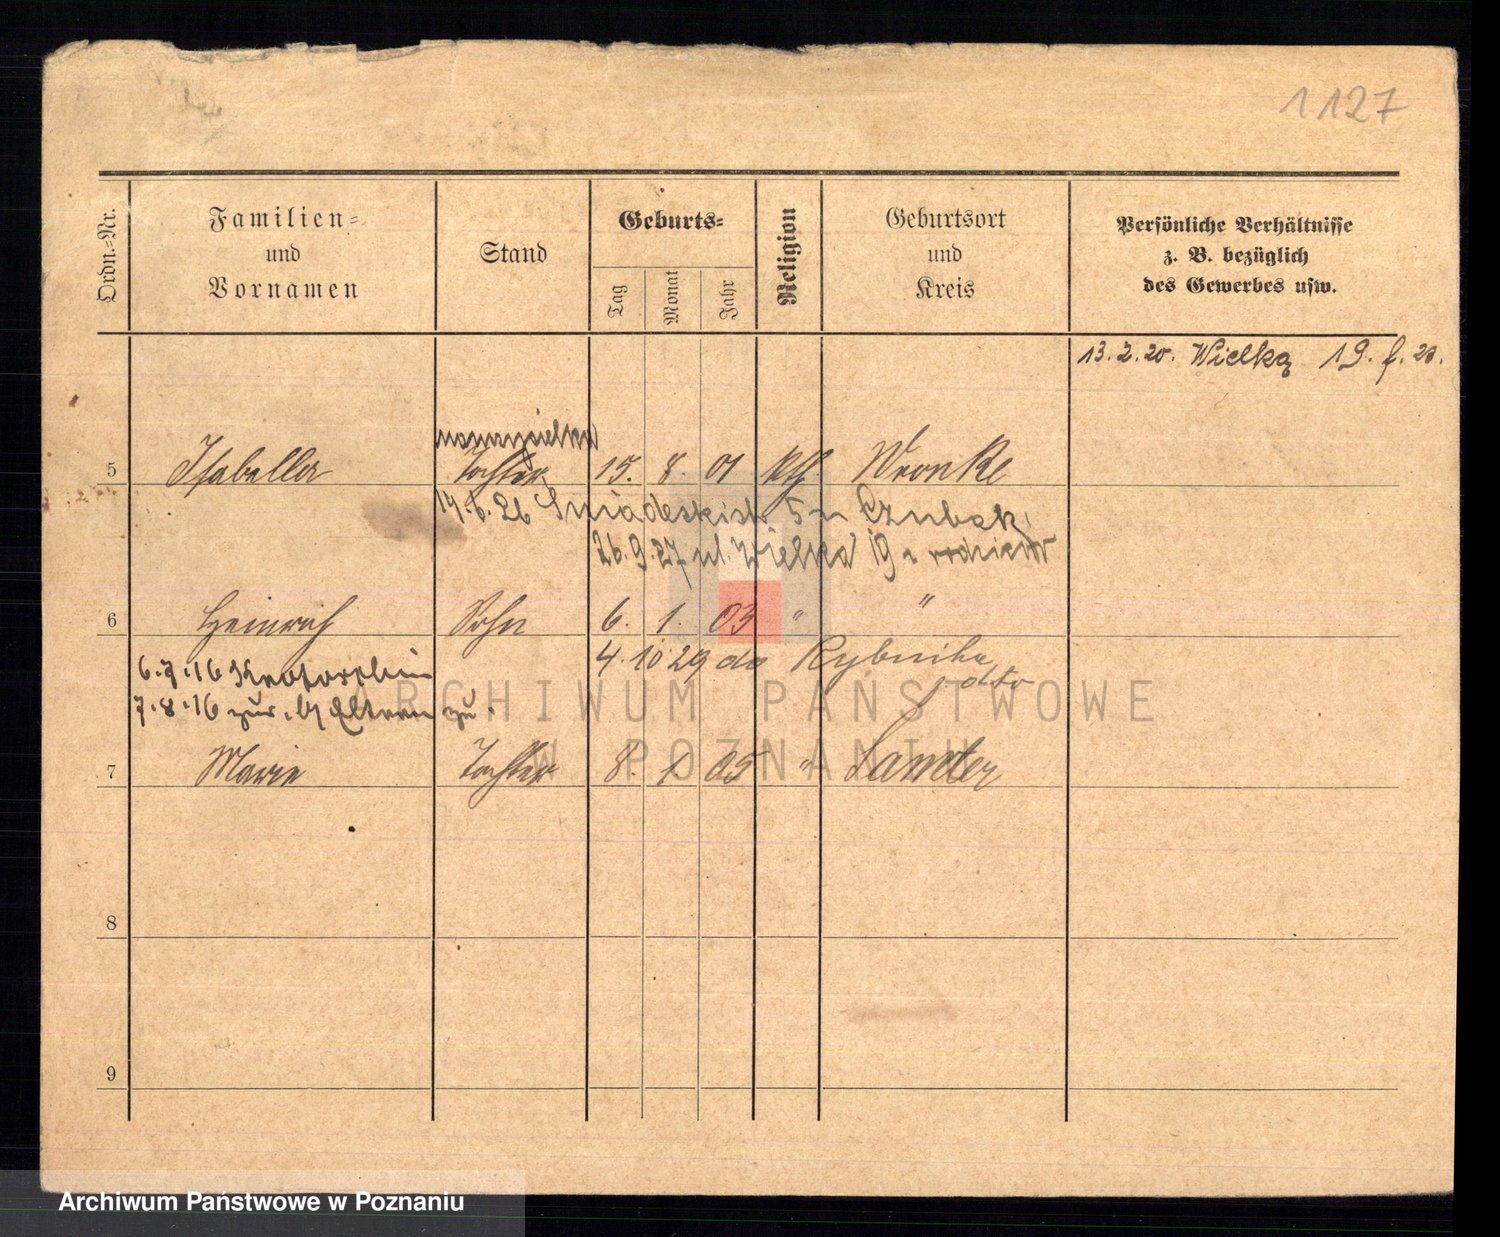 1127
Ordn.-Nr.
Familien-
und
Vornamen
Stand
Geburts-
Tag
Monat
Jahr
Religion
Geburtsort
und
Kreis
Persönliche Verhältnisse
z. B. bezüglich
des Gewerbes usw.
13.2.20. Wielka 19. f. 20.
nauczycielka
5 Isabella Tochter 15. 8. 01 kth Wronke
14.6.26 Śniadeskich 5 u Czubak
26.9.27 ul. Wielka 19 u rodziców
6 Heinrich Sohn 6. 1. 03 " "
4.10 29 do Rybnika
6.7.16 Krotoschin dto
7.8.16 zur. b/ Eltern zu.
7 Marie Tochter 8. 1 05 " Samter
8
9
ARCHIWUM PAŃSTWOWE
W POZNANIU
Archiwum Państwowe w Poznaniu